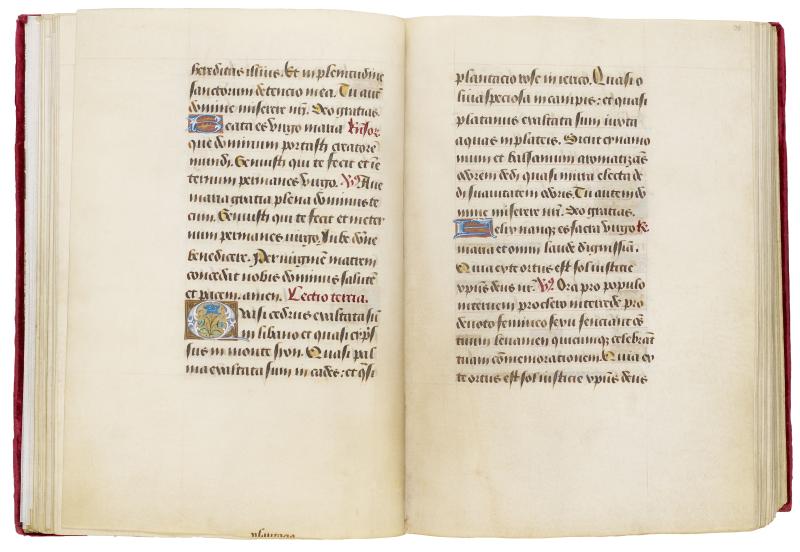 hereditas illius. Et in plenitudine
sanctorum detencio mea. Tu autē
domine miserere nr̄i. Deo gratias.
Beata es virgo maria Respōr
que dominum portasti creatorē
mundi. Genuisti qui te fecit et ī e
ternum permanes virgo. V̷. Aue
maria gratia plena dominus te
cum. Genuisti qui te fecit et in eter
num permanes virgo. Iube dōne
benedicere. Per virginē matrem
concedat nobis dominus salutē
et pacem. amen. Lectio tercia.
Quasi cedrus exaltata sū
in libano et quasi cip̄s
sus in monte syon. Quasi pal
ma exaltata sum in cades: et q̄si
plantacio
plantacio rose in ierico. Quasi o
liua speciosa in campis: et quasi
platanus exaltata sum iuxta
aquas in plateis. Sicut cynamo
mum et balsamum aromatizās
odorem dedi quasi mirra electa de
di suauitatem odoris. Tu autem do
mine miserere nr̄i. Deo gratias.
Felix nanque es sacra virgo R̷.
maria et omni laude dignissima.
Quia ex te ortus est sol iusticie
xp̄us deus nr̄. V̷. Ora pro populo
interueni pro clero intercede pro
deuoto femineo sexu senciant oēs
tuum leuamen quicumq; celebrant
tuam cōmemorationem. Quia ex
te ortus est sol iusticie xp̄us deus